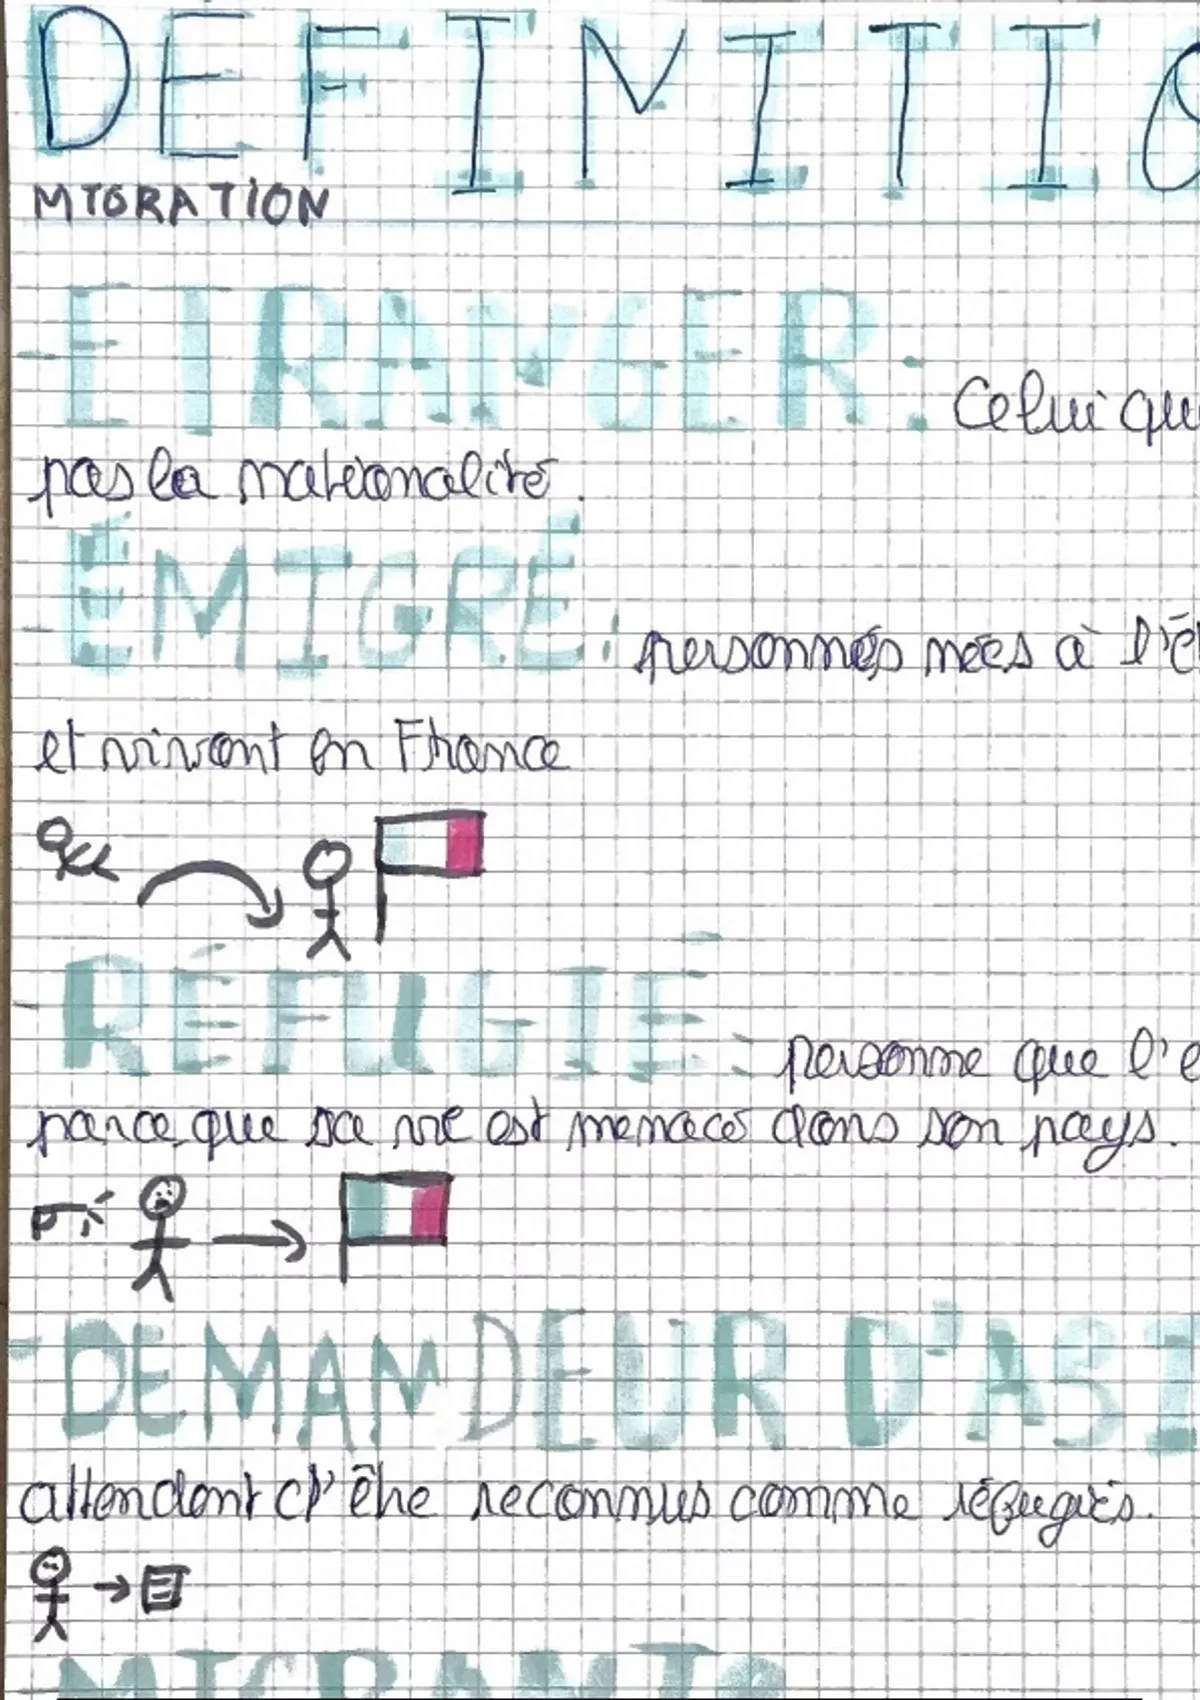 DÉFINITIO
MIGRATION
- ETRANGER : Celui qu
pas la nationalité.
- ÉMIGRÉ : personnes nées à l'é
et vivant en France
- RÉFUGIÉ : personne que l'e
parce que sa vie est menacé dans son pays.
- DEMANDEUR D'ASI
attendent d'être reconnus comme réfugiés.
MIGRANTS